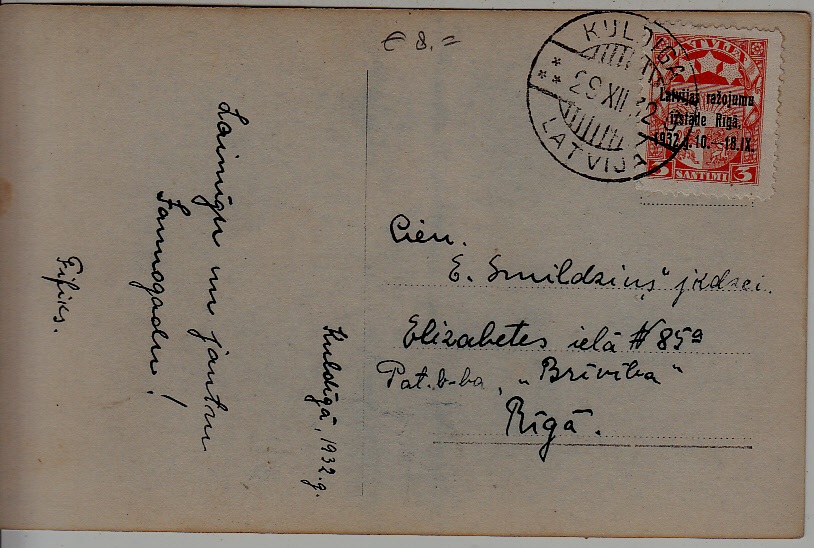 € 8.=
KULDIGA
29 XII 32
LATVIJA
LATVIJA
Latvijas ražojumu
izstāde Rīgā.
1932.g. 10.—18.IX.
3 SANTIMI 3
Laimīgu un jautru
Jaunogadu!
Fifiks.
Kuldīgā, 1932.g.
Cien.
E. Smildziņ" jkdzei.
Elizabetes ielā № 85a
Pat. b-ba „Brīvība"
Rīgā.